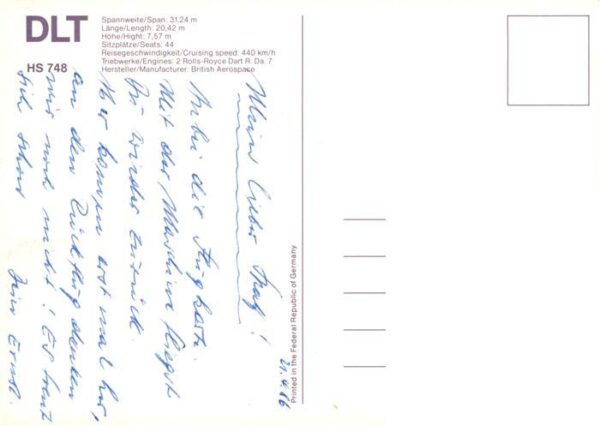 DLT
HS 748
Spannweite/Span: 31,24 m
Länge/Length: 20,42 m
Höhe/Hight: 7,57 m
Sitzplätze/Seats: 44
Reisegeschwindigkeit/Cruising speed: 440 km/h
Triebwerke/Engines: 2 Rolls-Royce Dart R. Da. 7
Hersteller/Manufacturer: British Aerospace
Mein lieber
Anbei die Flugkarte.
Mit der Maschine fliegst
Du wieder zurück.
Aber komm erst mal her,
an den Rückflug denken
wir noch nicht! Es freut
sich schon
Dein Ernst.
Printed in the Federal Republic of Germany